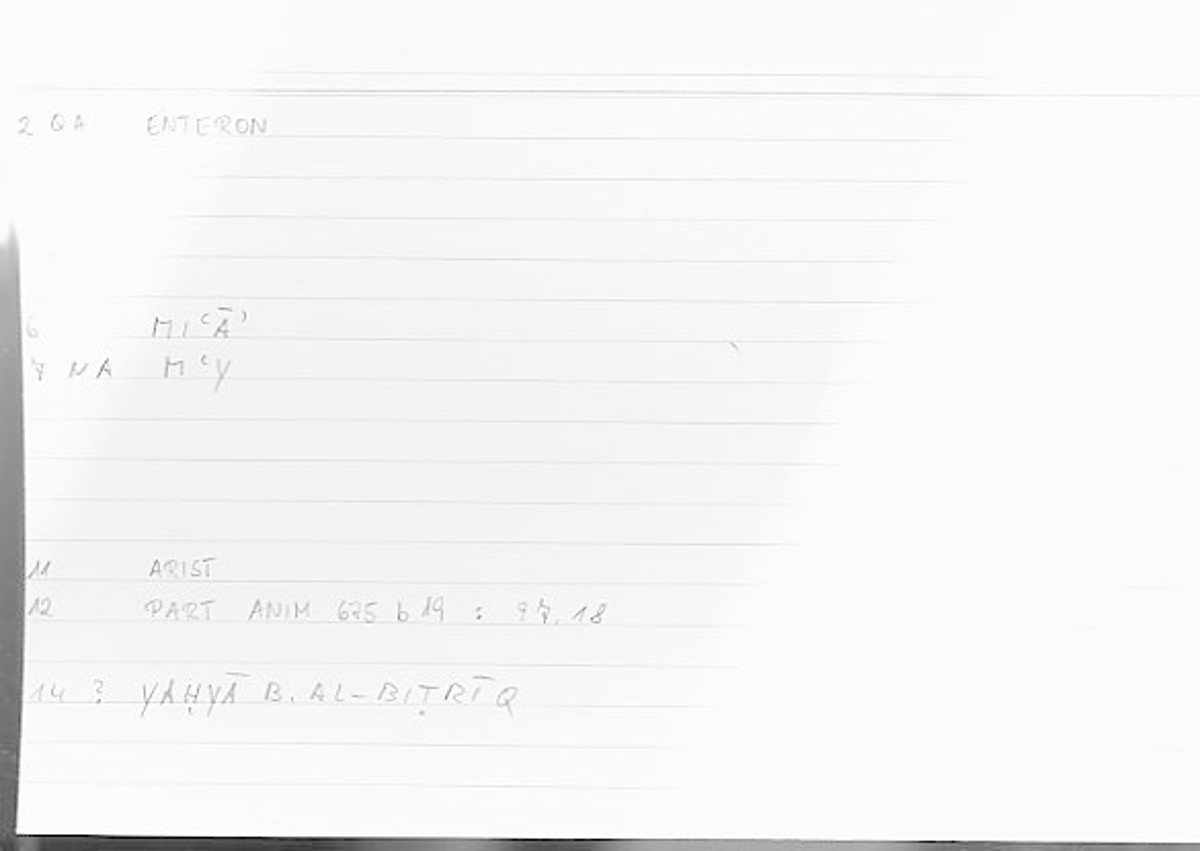 2 QA ENTERON
6 MIʿĀʾ
7 NA MʿY
11 ARIST
12 PART ANIM 675 b 19 : 97, 18
14 ? YAḤYĀ B. AL-BIṬRĪQ